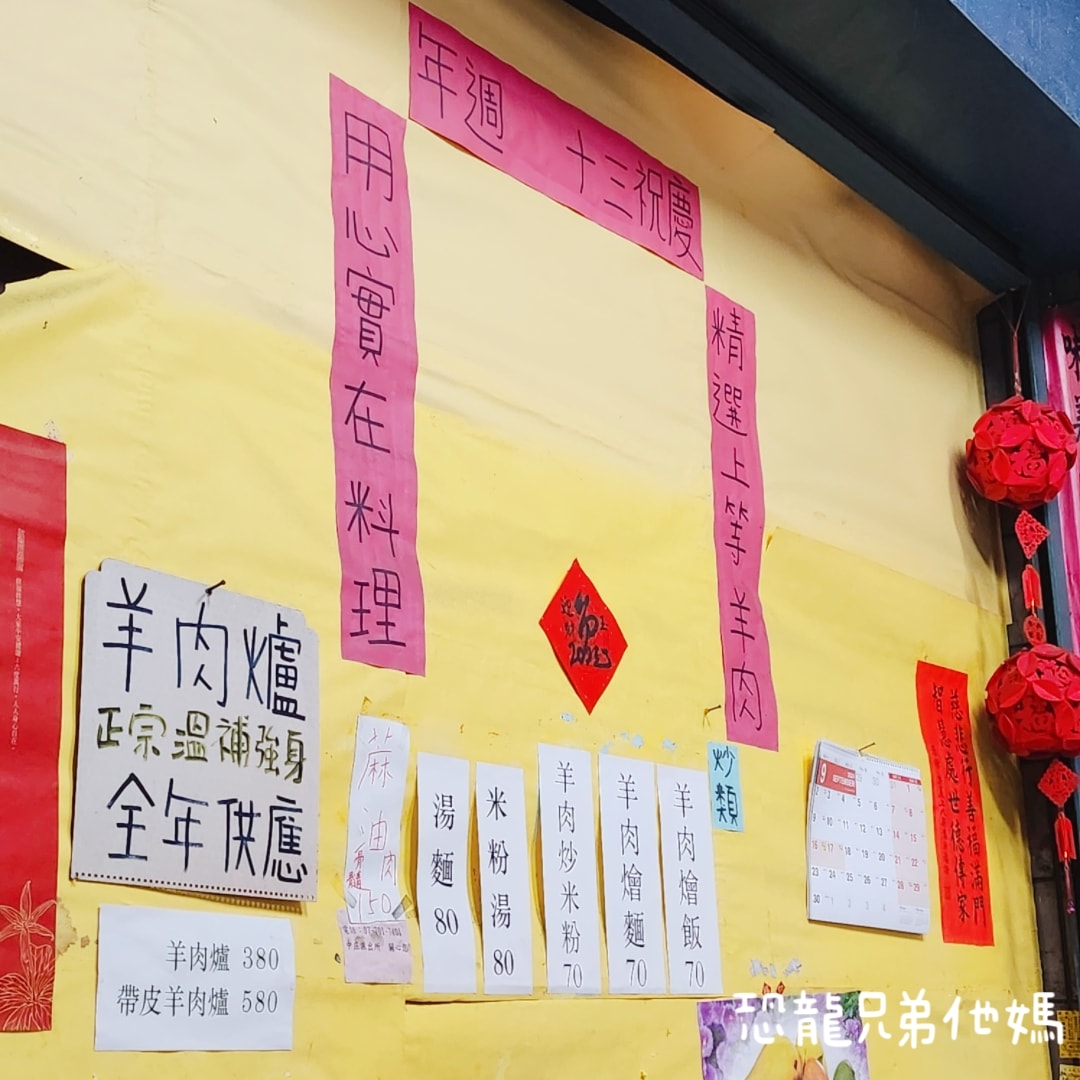 慶祝三十 週年
精選上等羊肉
用心實在料理
羊肉爐
正宗溫補強身
全年供應
羊肉爐 380
帶皮羊肉爐 580
麻油肉
150
湯麵 80
米粉湯 80
羊肉炒米粉 70
羊肉燴麵 70
羊肉燴飯 70
炒類
9
SEPTEMBER
慈悲行善福滿門
智慧處世德傳家
恐龍兄弟他媽